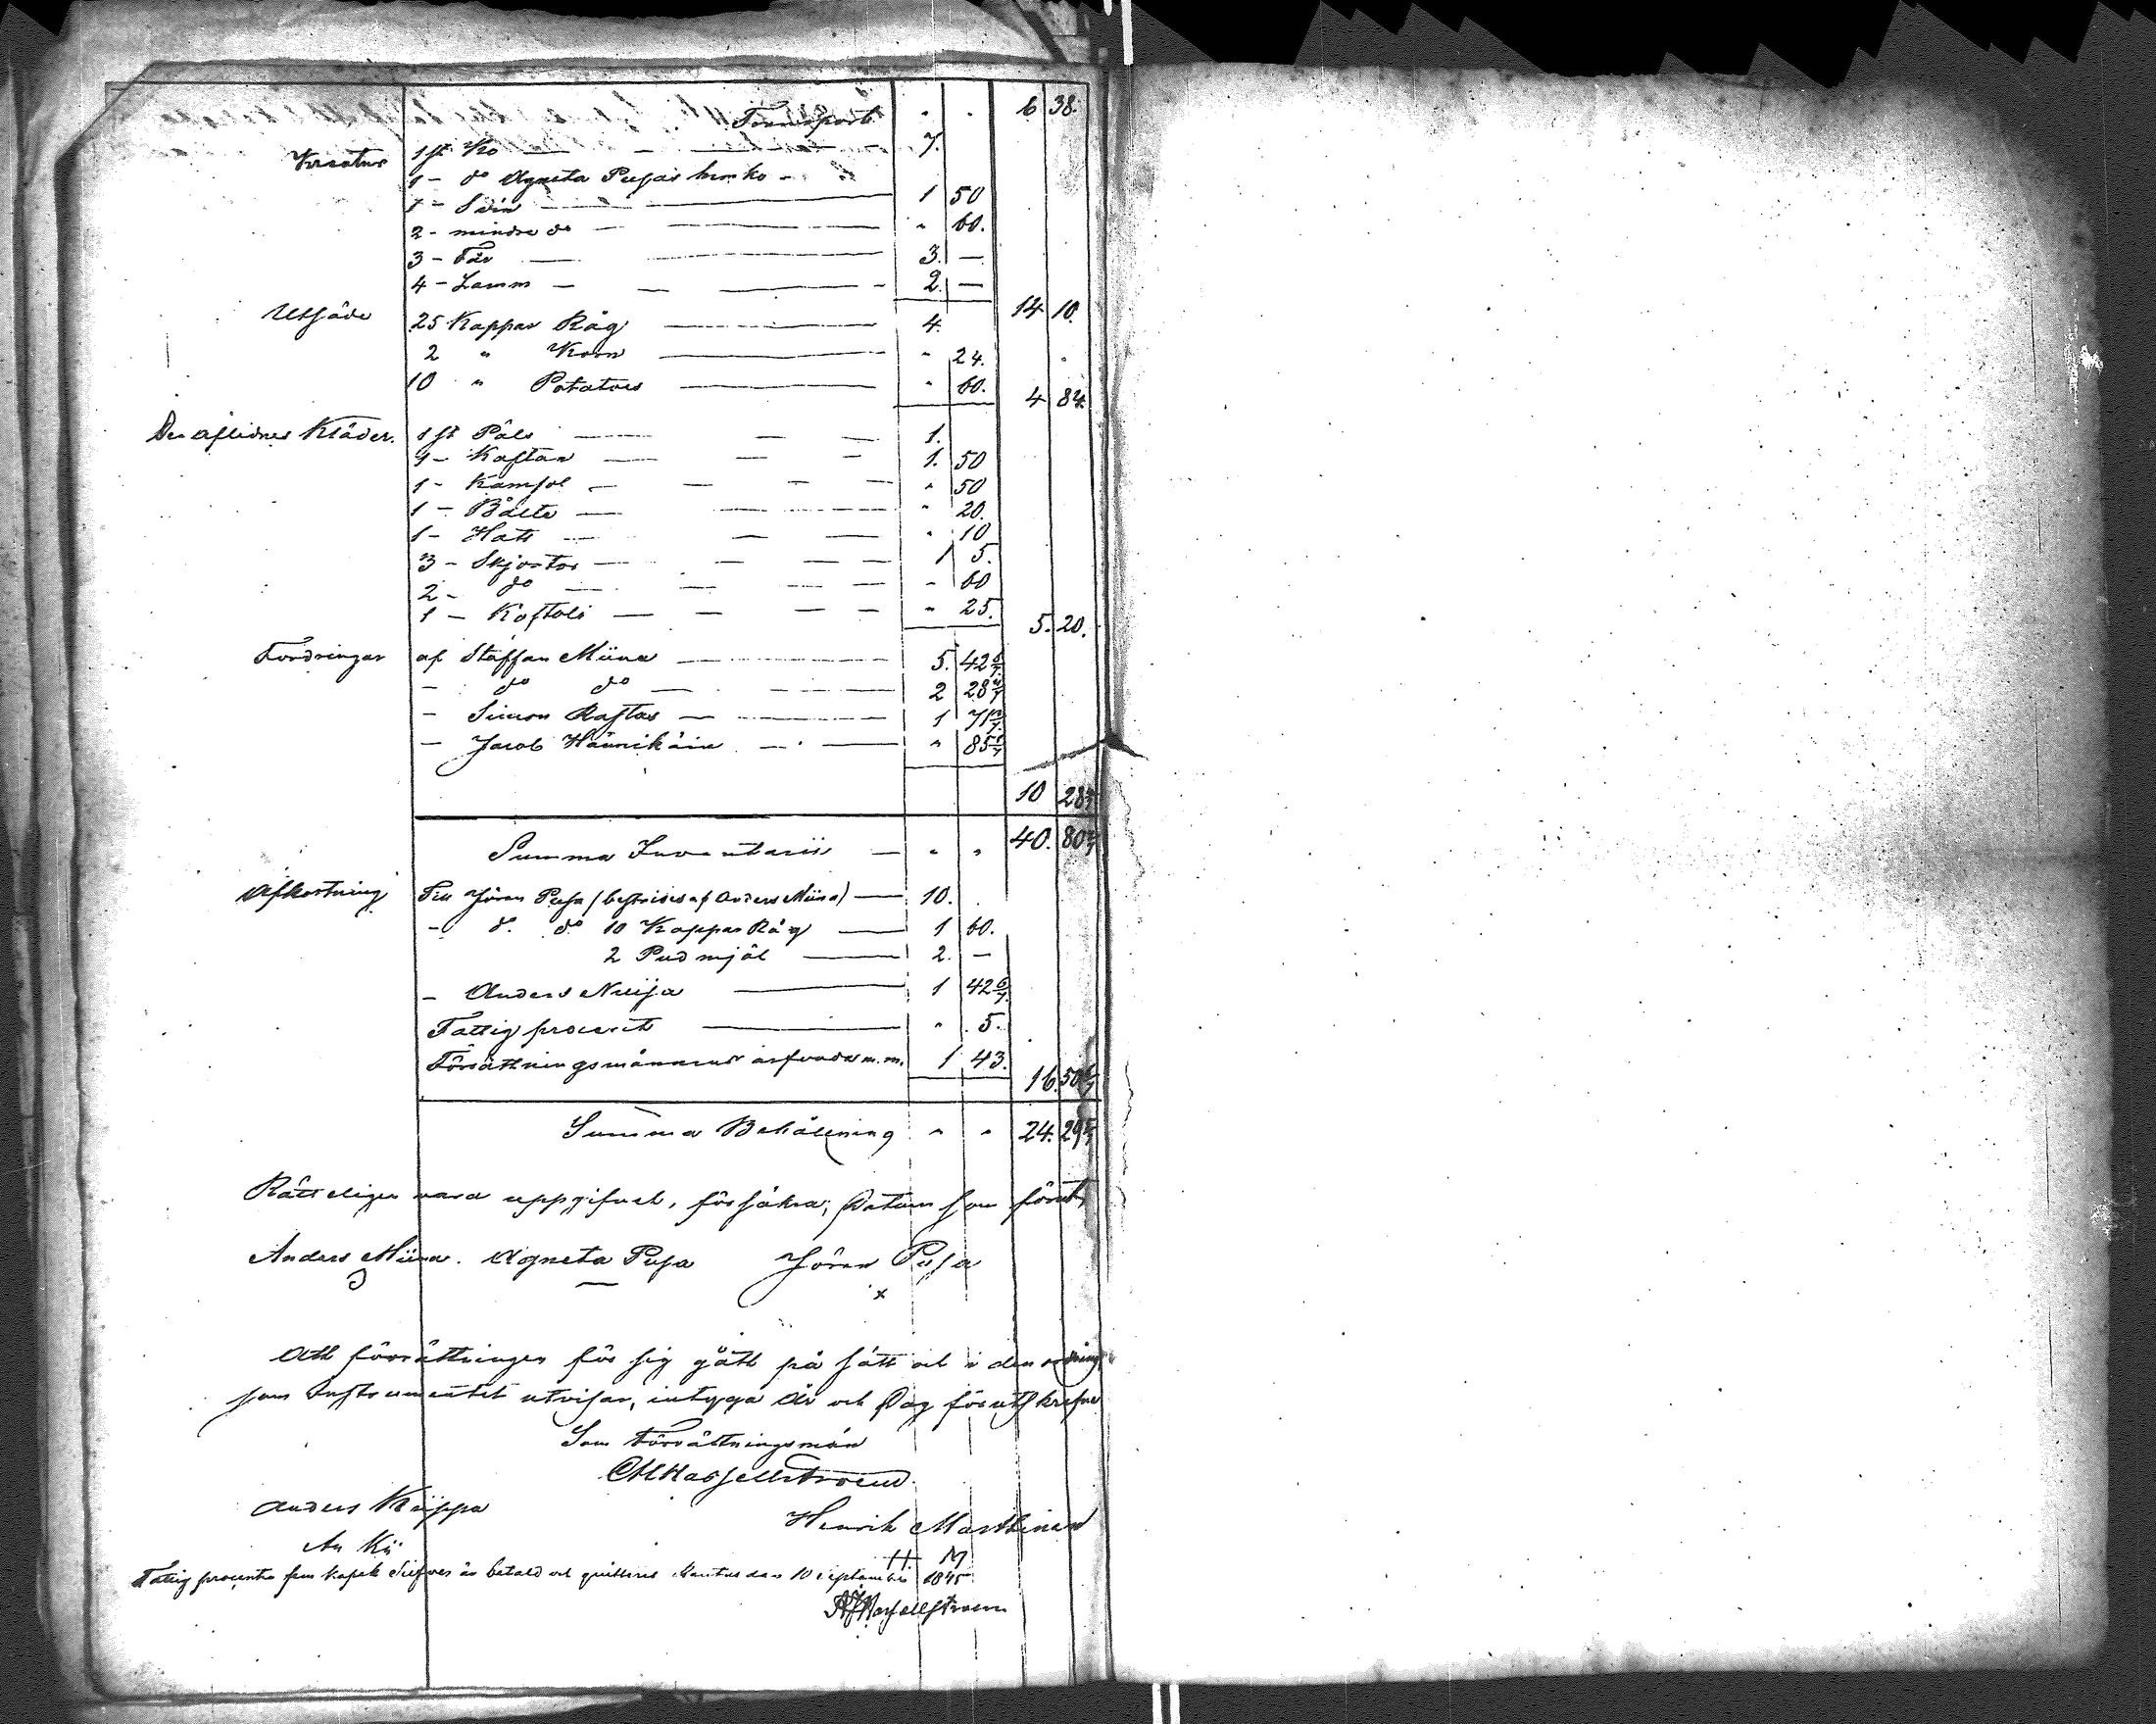 Transport " " 6 38.
Kreatur 1 st Ko — — — 7.
1 - do Agneta Pusas hemko -
1 - Svin — — 1 50
2 - mindre do — — " 60.
3 - Får — — 3. —
4 - Lamm — — — 2. —
14 10.
Utsäde 25 Kappar Råg — 4.
2 " Korn — " 24.
10 " Potatoes — " 60.
4 84.
Den aflidnes Kläder. 1 st Päls — — — 1.
1 - Kaftan — — — 1. 50
1 - Kamsol — — — " 50
1 - Bälte — — " 20.
1 - Hatt — — — " 10
3 - Skjortor — — — 1 5.
2 - do — — — " 60
1 - Koftoli — — — — " 25.
5. 20.
Fordringar af Staffan Miina — 5. 42 6/7.
- do do — — 2 28 4/7
- Simon Raftas — — 1 71 3/7.
- Jacob Hännikäin — — " 85 5/7
10 28 4/7
Summa Inventarii — " " 40. 80 4/7
Afkortning Till Jören Pusa (bestrides af Anders Miina) — 10.
- d. do 10 Kappar Råg — 1 60.
2 Pud mjöl — 2. —
- Anders Nuija — 1 42 6/7.
Fattig procent — " 5.
Förrättningsmännens arfvode m. m. 1 43.
16. 50 6/7
Summa Behållning " " 24. 29 5/7
Rätteligen vara uppgifvet, försäkra; Datum som förut
Anders Miina. Agneta Pusa Jören Pusa
x
Att förrättningen för sig gått på sätt och i den ordning
som Instrumentet utvisar, intyga År och Dag förutskrefne
Som Förrättningsmän
CHHassellstroem.
Anders Kiippa Henrik Marttinen
An Kii H. M
Fattig procenten fem kopek Silfver är betald och quitteras den 10 September 1845
Hassellstroem